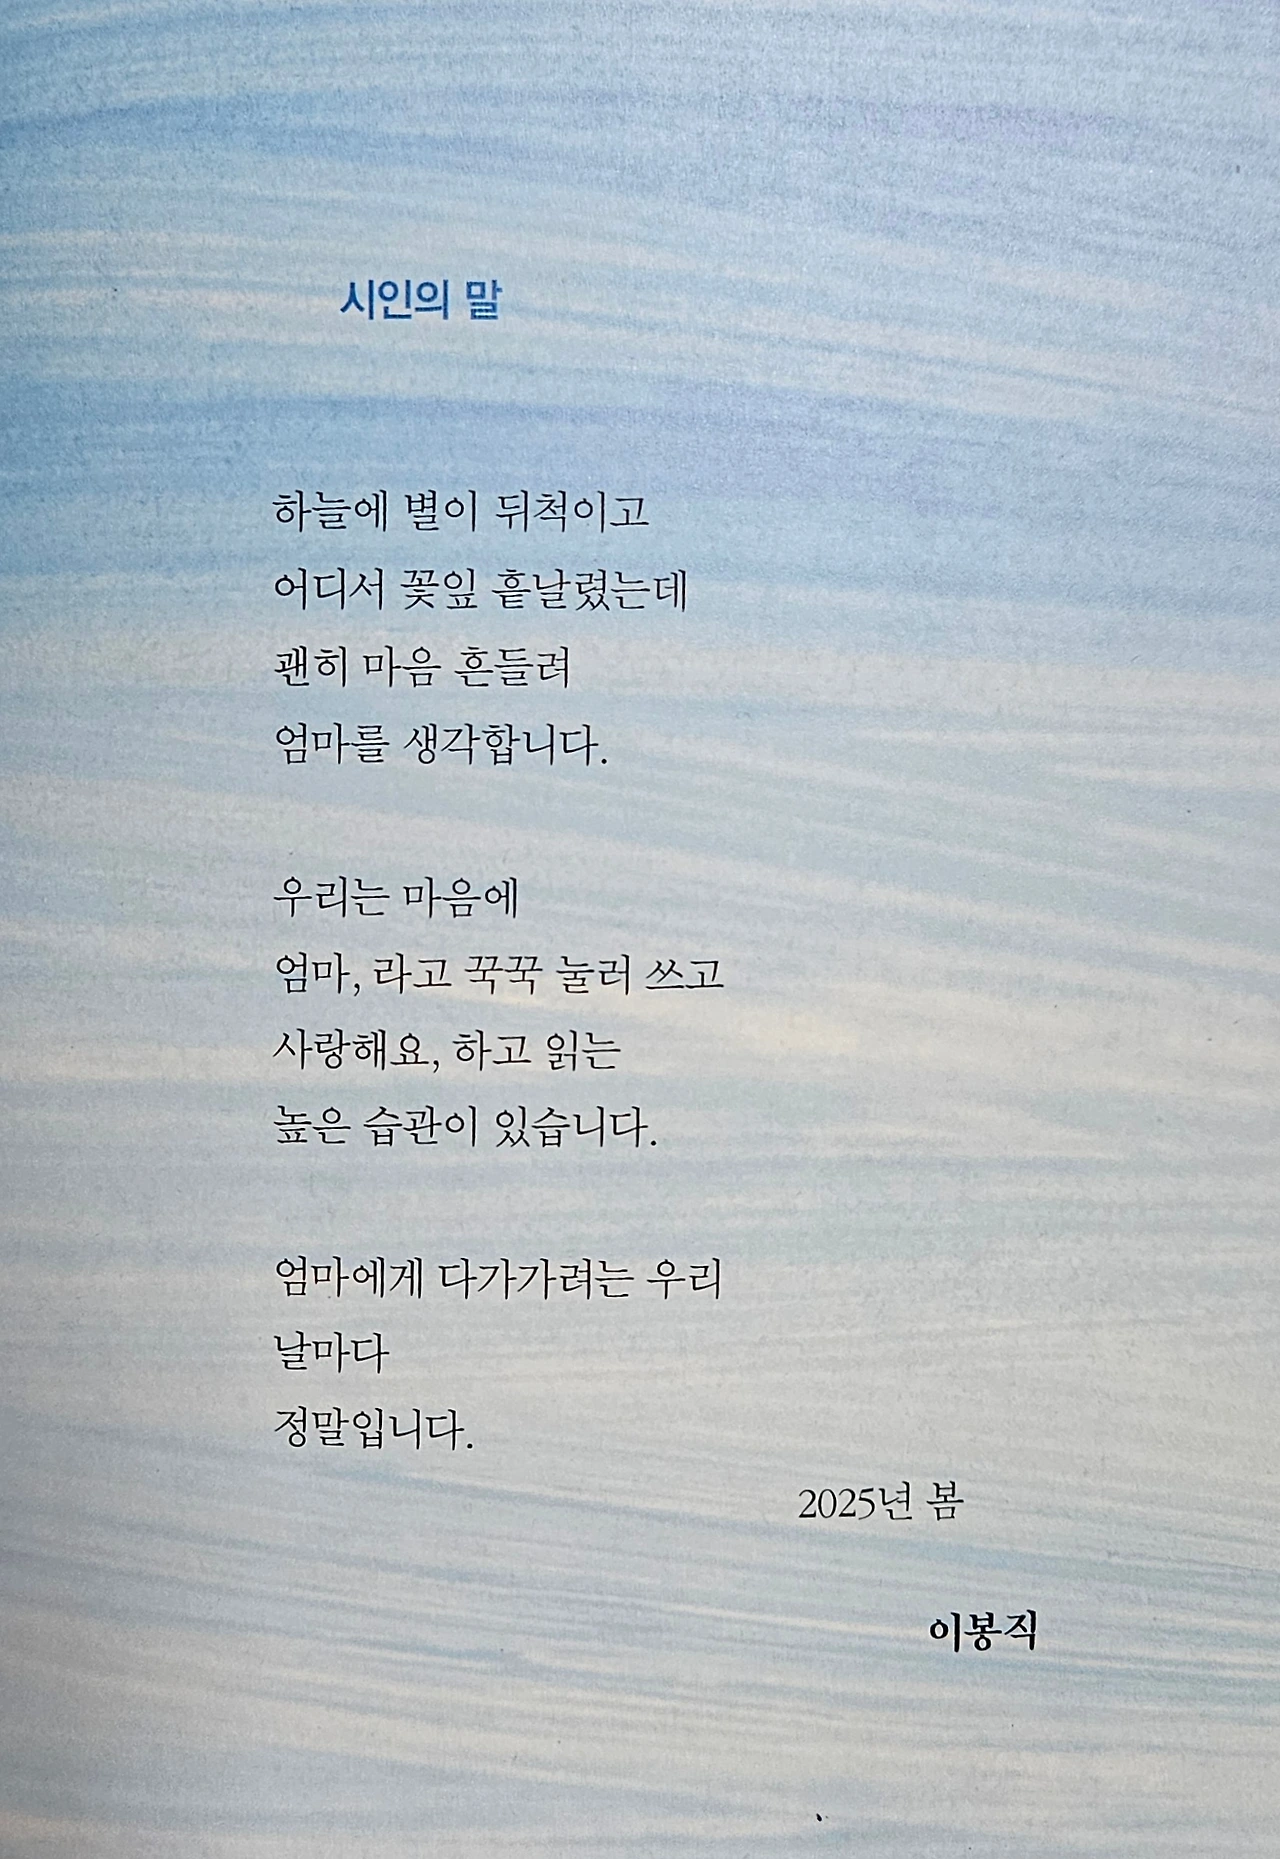 시인의 말
하늘에 별이 뒤척이고
어디서 꽃잎 흩날렸는데
괜히 마음 흔들려
엄마를 생각합니다.
우리는 마음에
엄마, 라고 꾹꾹 눌러 쓰고
사랑해요, 하고 읽는
높은 습관이 있습니다.
엄마에게 다가가려는 우리
날마다
정말입니다.
2025년 봄
이봉직